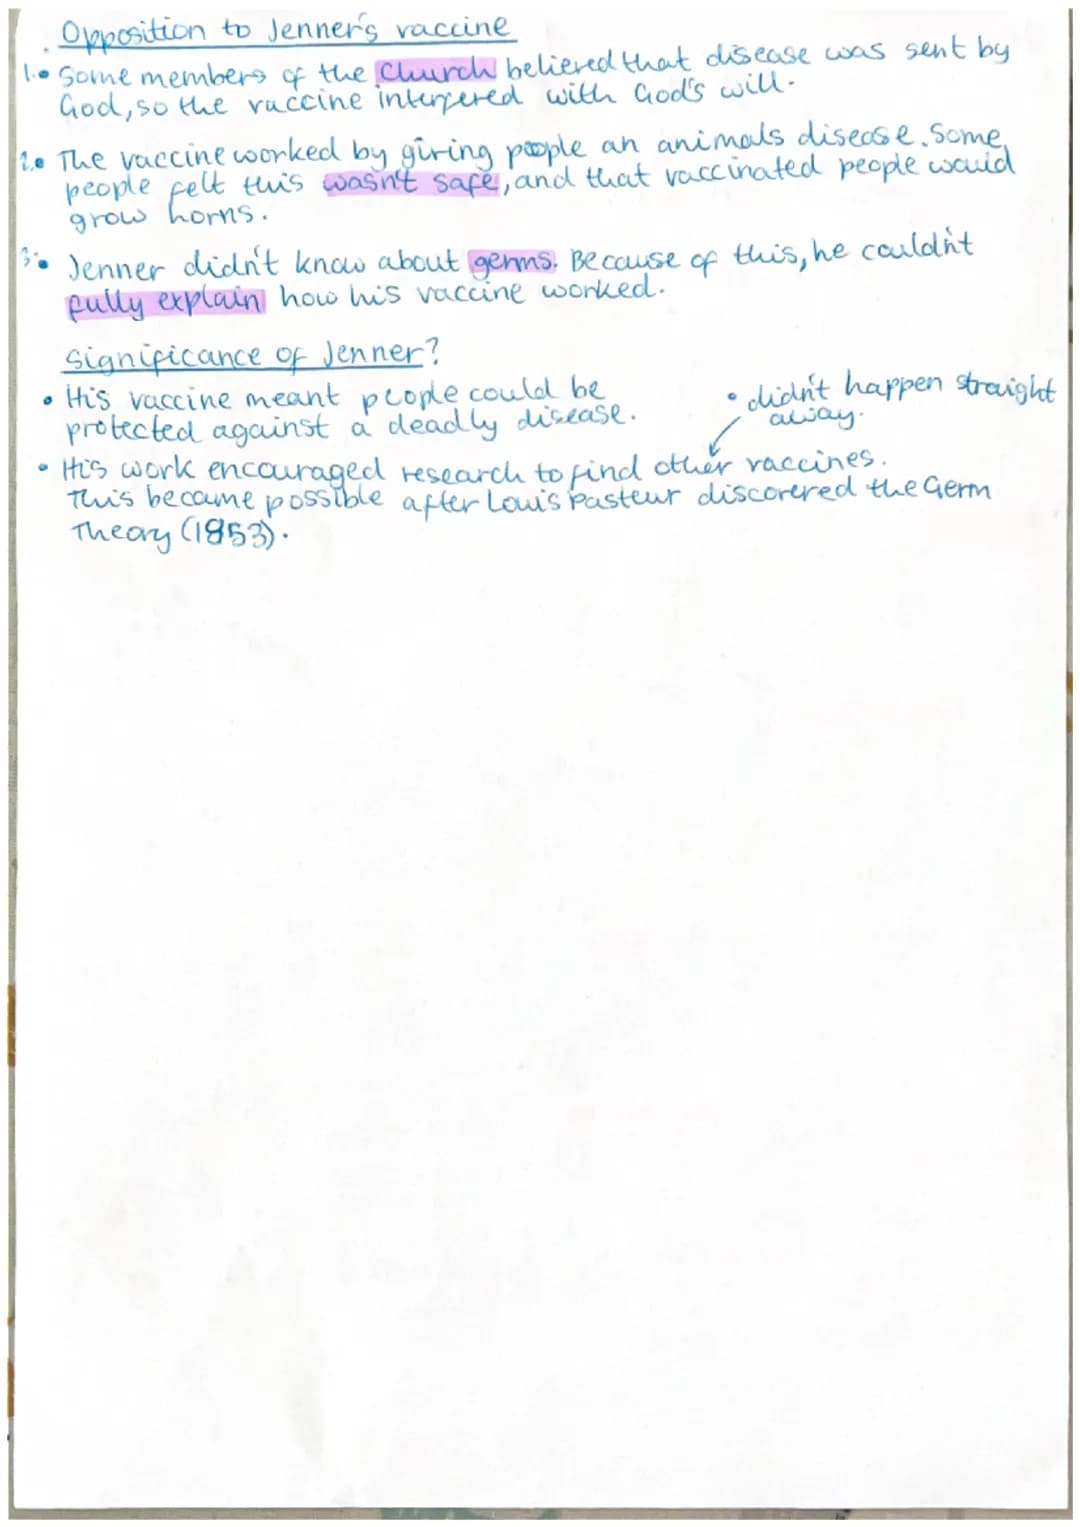 Opposition to Jenner's vaccine
1. • Some members of the Church believed that disease was sent by
God, so the vaccine interfered with God's will.
2. • The vaccine worked by giving people an animals disease. Some
people felt this wasn't safe, and that vaccinated people would
grow horns.
3. • Jenner didn't know about germs. Because of this, he couldn't
fully explain how his vaccine worked.
Significance of Jenner?
• His vaccine meant people could be
protected against a deadly disease.
• didn't happen straight
away.
• His work encouraged research to find other vaccines.
This became possible after Louis Pasteur discovered the Germ
Theory (1853).